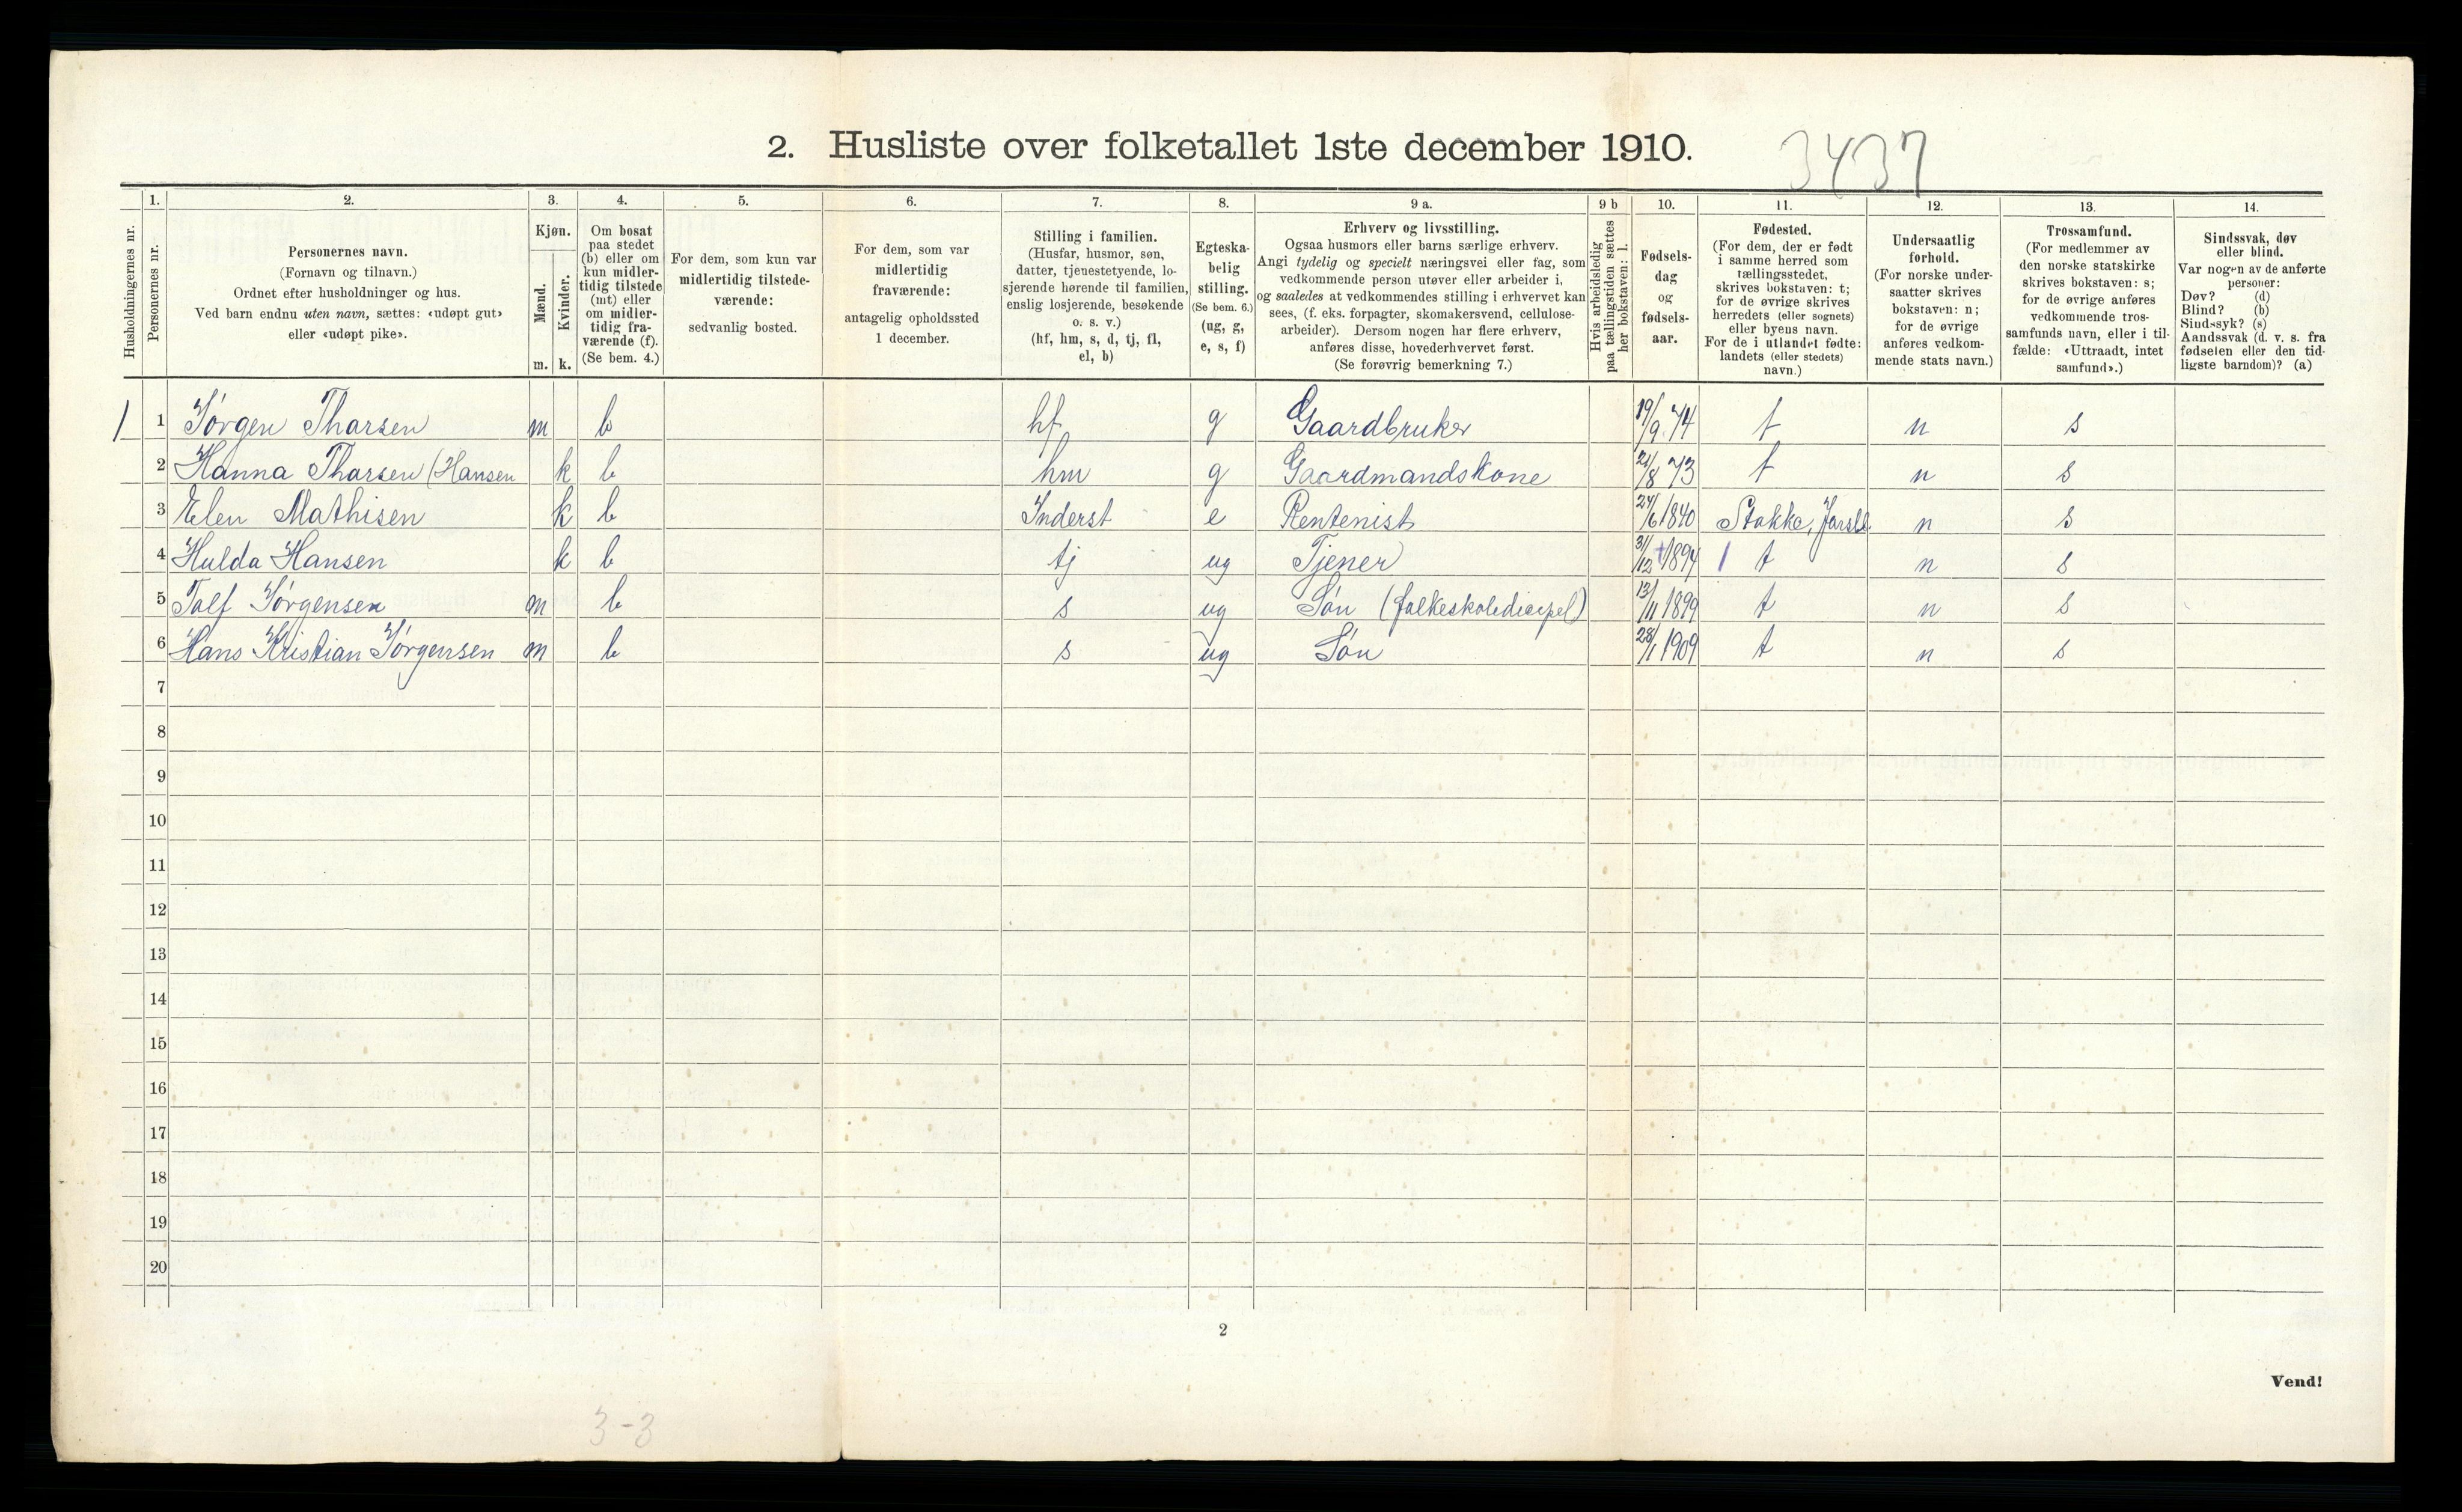 2. Husliste over folketallet 1ste december 1910. 3437
Husholdningernes nr.
1. Personernes nr.
2. Personernes navn.
(Fornavn og tilnavn.)
Ordnet efter husholdninger og hus.
Ved barn endnu uten navn, sættes: «udøpt gut»
eller «udøpt pike».
3. Kjøn.
Mænd. Kvinder.
m. k.
4. Om bosat
paa stedet
(b) eller om
kun midler-
tidig tilstede
(mt) eller
om midler-
tidig fra-
værende (f).
(Se bem. 4.)
5. For dem, som kun var
midlertidig tilstede-
værende:
sedvanlig bosted.
6. For dem, som var
midlertidig
fraværende:
antagelig opholdssted
1 december.
7. Stilling i familien.
(Husfar, husmor, søn,
datter, tjenestetyende, lo-
sjerende hørende til familien,
enslig losjerende, besøkende
o. s. v.)
(hf, hm, s, d, tj, fl,
el, b)
8. Egteska-
belig
stilling.
(Se bem. 6.)
(ug, g,
e, s, f)
9 a. Erhverv og livsstilling.
Ogsaa husmors eller barns særlige erhverv.
Angi tydelig og specielt næringsvei eller fag, som
vedkommende person utøver eller arbeider i,
og saaledes at vedkommendes stilling i erhvervet kan
sees, (f. eks. forpagter, skomakersvend, cellulose-
arbeider). Dersom nogen har flere erhverv,
anføres disse, hovederhvervet først.
(Se forøvrig bemerkning 7.)
9 b Hvis arbeidsledig
paa tællingstiden sættes
her bokstaven: l.
10. Fødsels-
dag
og
fødsels-
aar.
11. Fødested.
(For dem, der er født
i samme herred som
tællingsstedet,
skrives bokstaven: t;
for de øvrige skrives
herredets (eller sognets)
eller byens navn.
For de i utlandet fødte:
landets (eller stedets)
navn.)
12. Undersaatlig
forhold.
(For norske under-
saatter skrives
bokstaven: n;
for de øvrige
anføres vedkom-
mende stats navn.)
13. Trossamfund.
(For medlemmer av
den norske statskirke
skrives bokstaven: s;
for de øvrige anføres
vedkommende tros-
samfunds navn, eller i til-
fælde: «Uttraadt, intet
samfund».)
14. Sindssvak, døv
eller blind.
Var nogen av de anførte
personer:
Døv? (d)
Blind? (b)
Sindssyk? (s)
Aandssvak (d. v. s. fra
fødselen eller den tid-
ligste barndom)? (a)
1 1 Jørgen Tharsen m b hf g Gaardbruker 19/9 74 t n s
2 Hanna Tharsen (Hansen k b hm g Gaardmandskone 21/8 73 t n s
3 Elen Mathisen k b Inderst e Rentenist 24/6 1840 Stokke, Jarsb. n s
4 Hulda Hansen k b tj ug Tjener 31/12 1894 t n s
5 Tolf Jørgensen m b s ug Søn (folkeskolediscipel) 13/11 1899 t n s
6 Hans Kristian Jørgensen m b s ug Søn 28/1 1909 t n s
7
8
9
10
11
12
13
14
15
16
17
18
19
20
2
Vend!
3-3